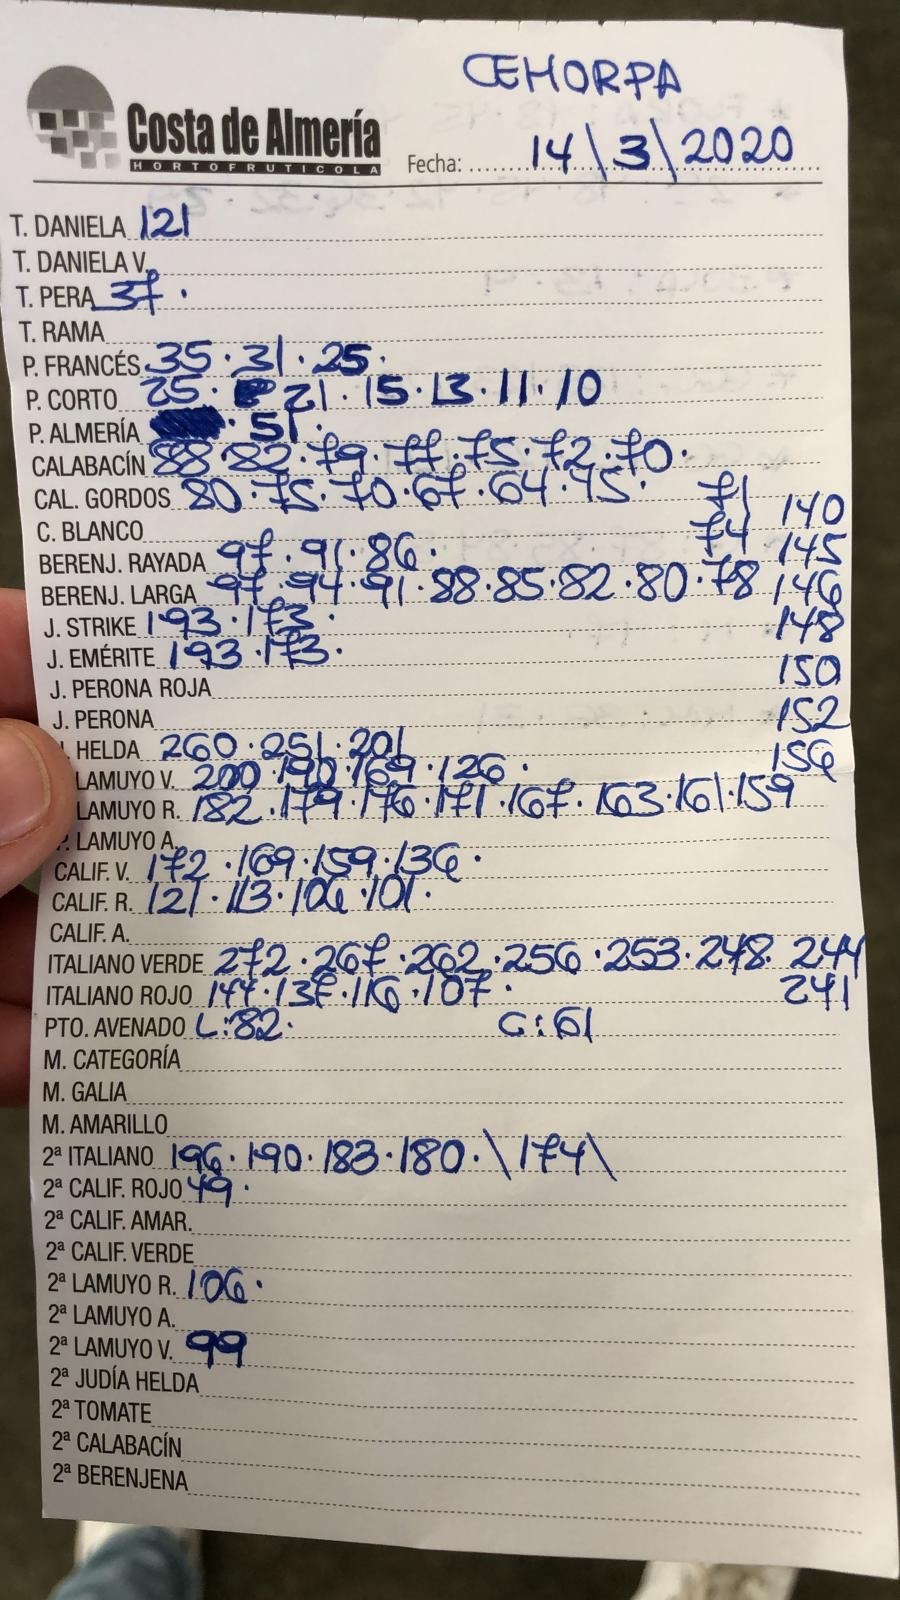 CEHORPA
Costa de Almería
HORTOFRUTICOLA
Fecha: 14\3\2020
T. DANIELA 121
T. DANIELA V.
T. PERA 37.
T. RAMA
P. FRANCÉS 35.31.25.
P. CORTO 25. 21.15.13.11.10
P. ALMERÍA .51.
CALABACÍN 88.82.79.77.75.72.70.
CAL. GORDOS 80.75.70.67.64.45. 71 140
C. BLANCO 74 145
BERENJ. RAYADA 97.91.86.
BERENJ. LARGA 97.94.91.88.85.82.80.78 146
J. STRIKE 193.173. 148
J. EMÉRITE 193.173.
J. PERONA ROJA 150
J. PERONA 152
J. HELDA 260.251.201 156
LAMUYO V. 200.190.169.126.
LAMUYO R. 182.179.176.171.167.163.161.159
P. LAMUYO A.
CALIF. V. 172.169.159.136.
CALIF. R. 121.113.106.101.
CALIF. A.
ITALIANO VERDE 272.267.262.256.253.248. 244
ITALIANO ROJO 144.137.116.107. 241
PTO. AVENADO L:82. C:61
M. CATEGORÍA
M. GALIA
M. AMARILLO
2ª ITALIANO 196.190.183.180.\174\
2ª CALIF. ROJO 49.
2ª CALIF. AMAR.
2ª CALIF. VERDE
2ª LAMUYO R. 106.
2ª LAMUYO A.
2ª LAMUYO V. 99
2ª JUDÍA HELDA
2ª TOMATE
2ª CALABACÍN
2ª BERENJENA